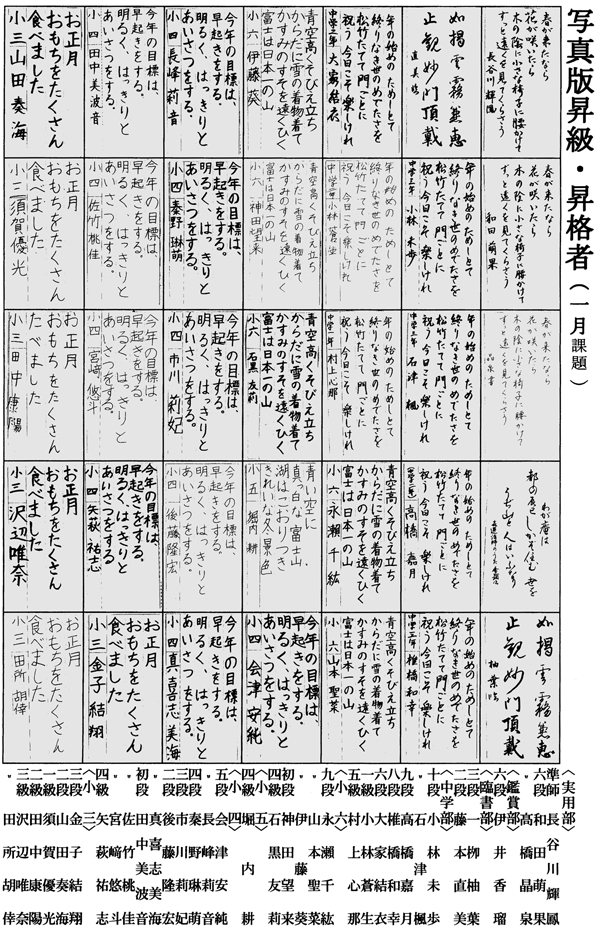 写真版昇級・昇格者（一月課題）
春が来たなら
花が咲いたら
木の陰に小さな椅子に腰かけて
ずっと遠くを見てくらさう
長谷川輝鳳
如掲雲霧
止観妙門頂戴
直美臨
年の始めのためしとて
終りなき世のめでたさを
松竹たてて門ごとに
祝う今日こそ楽しけれ
中学三年 大家結衣
青空高くそびえ立ち
からだに雪の着物着て
かすみのすそを遠くひく
富士は日本一の山
小六 伊藤葵
今年の目標は、
早起きをする。
明るく、はっきりと
あいさつをする。
小四 長峰莉音
今年の目標は、
早起きをする。
明るく、はっきりと
あいさつをする。
小四 田中美波音
お正月
おもちをたくさん
食べました
小三 山田奏海
春が来たなら
花が咲いたら
木の陰に小さな椅子に腰かけて
ずっと遠くを見てくらさう
和田萌果
年の始めのためしとて
終りなき世のめでたさを
松竹たてて門ごとに
祝う今日こそ楽しけれ
小林未歩
年の始めのためしとて
終りなき世のめでたさを
松竹たてて門ごとに
祝う今日こそ楽しけれ
小林蒼生
青空高くそびえ立ち
からだに雪の着物着て
かすみのすそを遠くひく
富士は日本一の山
小六 神田望来
今年の目標は、
早起きをする。
明るく、はっきりと
あいさつをする。
小四 秦野琳萌
今年の目標は、
早起きをする。
明るく、はっきりと
あいさつをする。
小四 佐竹桃佳
お正月
おもちをたくさん
食べました
小三 須賀優光
春が来たなら
花が咲いたら
木の陰に小さな椅子に腰かけて
ずっと遠くを見てくらさう
晶泉書
年の始めのためしとて
終りなき世のめでたさを
松竹たてて門ごとに
祝う今日こそ楽しけれ
石津楓
年の始めのためしとて
終りなき世のめでたさを
松竹たてて門ごとに
祝う今日こそ楽しけれ
中学一年 村上心那
青空高くそびえ立ち
からだに雪の着物着て
かすみのすそを遠くひく、
富士は日本一の山
小六 石黒友莉
今年の目標は、
早起きをする。
明るく、はっきりと
あいさつをする。
小四 市川莉妃
今年の目標は、
早起きをする。
明るく、はっきりと
あいさつをする。
小四 宮﨑悠斗
お正月
おもちをたくさん
たべました
小三 田中康陽
わが庵は
うぢ山と人はいふなり
年の始めのためしとて
終りなき世のめでたさを
松竹たてて門ごとに
祝う今日こそ楽しけれ
高橋嘉月
青空高くそびえ立ち
からだに雪の着物着て
かすみのすそを遠くひく
富士は日本一の山
小六 永瀬千紘
青い空に
真っ白な富士山
湖はこおりつき
きれいな冬景色
小五 堀内耕
今年の目標は、
早起きをする。
明るく、はっきりと
あいさつをする。
小四 後藤隆宏
今年の目標は、
早起きをする。
明るく、はっきりと
あいさつをする。
小四 矢萩祐志
お正月
おもちをたくさん
食べました
小三 沢辺唯奈
如掲雲霧
止観妙門頂戴
柚葉臨
年の始めのためしとて
終りなき世のめでたさを
松竹たてて門ごとに
祝う今日こそ楽しけれ
椎橋和幸
青空高くそびえ立ち
からだに雪の着物着て
かすみのすそを遠くひく
富士は日本一の山
小六 山本聖菜
今年の目標は、
早起きをする。
明るく、はっきりと
あいさつをする。
小四 会津安純
今年の目標は、
早起きをする。
明るく、はっきりと
あいさつをする。
小四 真喜志美海
お正月
おもちをたくさん
食べました
小三 金子結翔
お正月
おもちをたくさん
食べました
小三 田所胡倖
〈実用部〉
準師 長谷川輝鳳
六段 和田萌果
〃 高橋晶泉
〈鑑賞部〉
六段 伊井香瑠
〈臨書部〉
三段 一柳直美
二段 藤本柚葉
〈中学部〉
十段 小林未歩
〃 石津楓
九段 高橋嘉月
〃 椎橋和幸
八段 大家結衣
六段 小林蒼生
一級 村上心那
〈小六〉
九段 永瀬千紘
〃 山本聖菜
〃 伊藤葵
初段 神田望来
四級 石黒友莉
〈小五〉
四級 堀内耕
〈小四〉
五段 会津安純
〃 長峰莉音
四段 秦野琳萌
三段 市川莉妃
二段 後藤隆宏
〃 真喜志美海
初段 田中美波音
〃 佐竹桃佳
〃 宮﨑悠斗
四級 矢萩祐志
〈小三〉
三段 金子結翔
二段 山田奏海
一級 須賀優光
二級 田中康陽
三級 沢辺唯奈
〃 田所胡倖